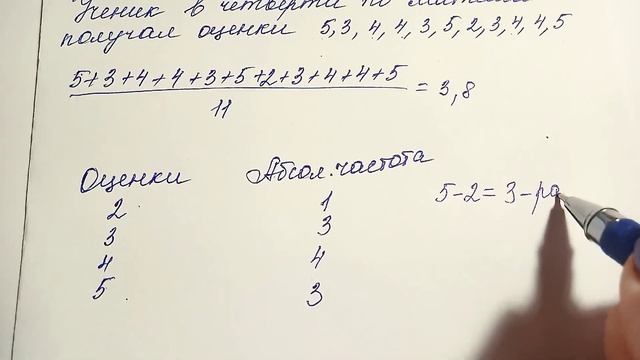 Ученик в четверти по матема
получал оценки 5,3,4,4,3,5,2,3,4,4,5
5+3+4+4+3+5+2+3+4+4+5
11
= 3,8
Оценки Абсол. частота
2 1
3 3
4 4
5 3
5-2=3-ра